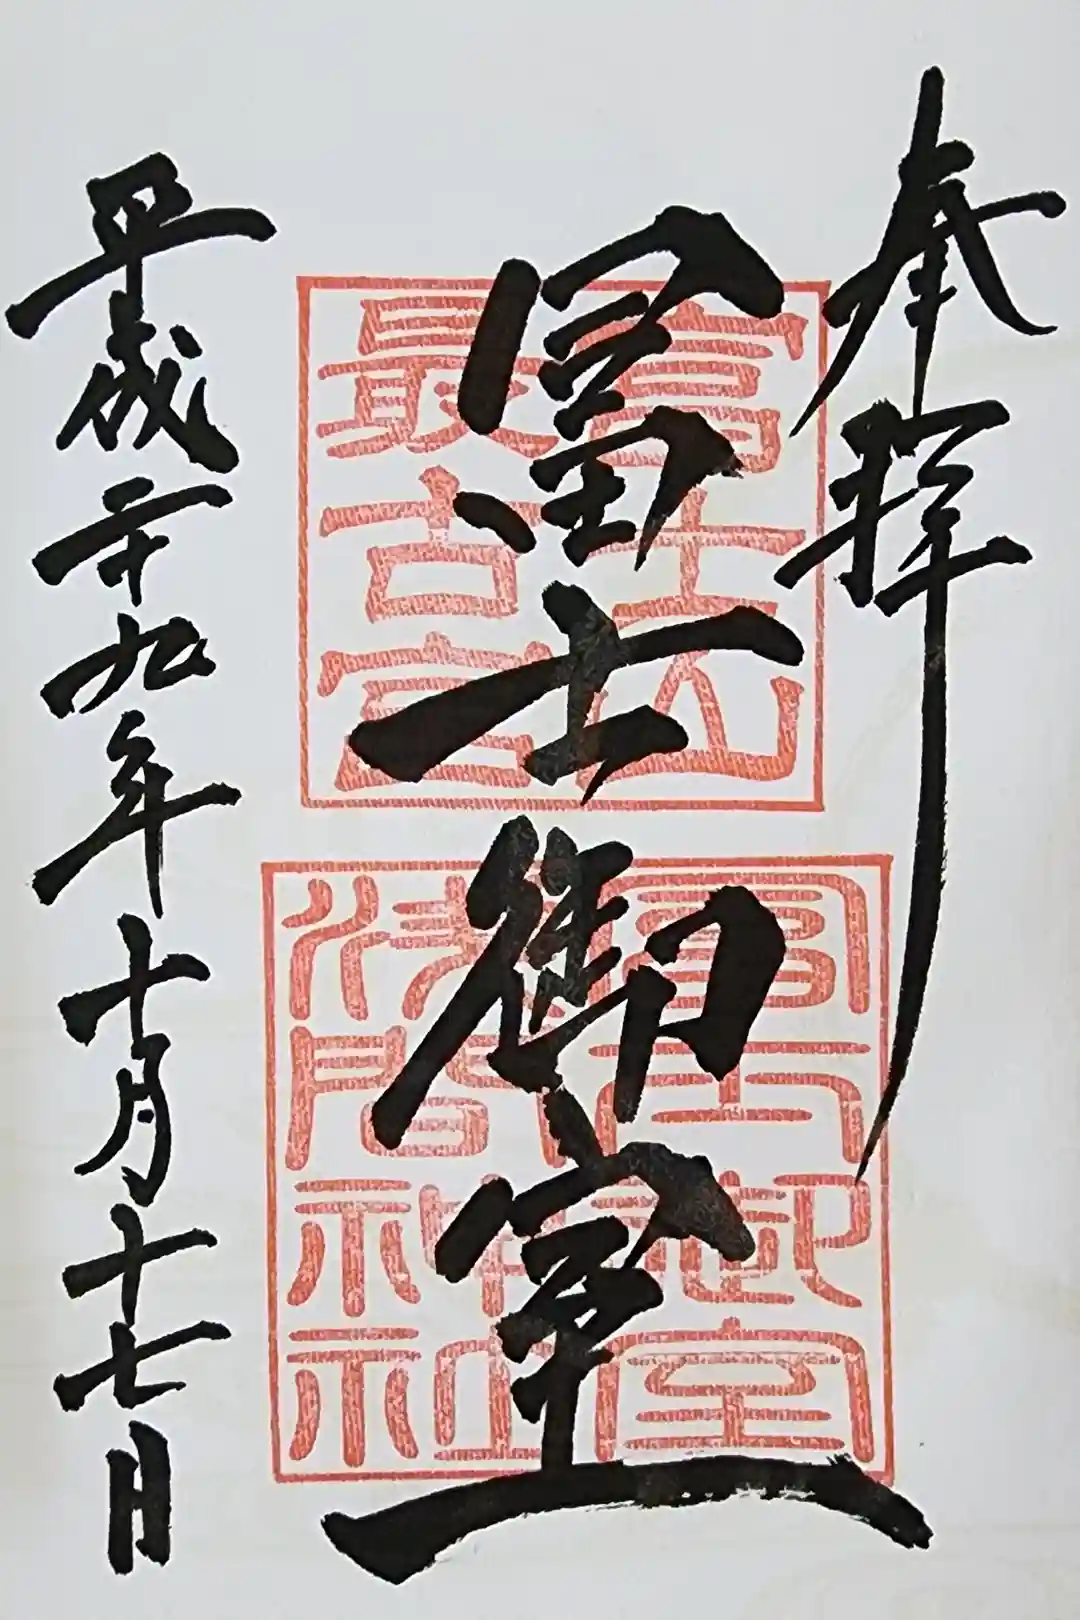 奉拝
富士山
最古宮
富士御室
浅間神社
冨士御室
平成二十九年十月十七日